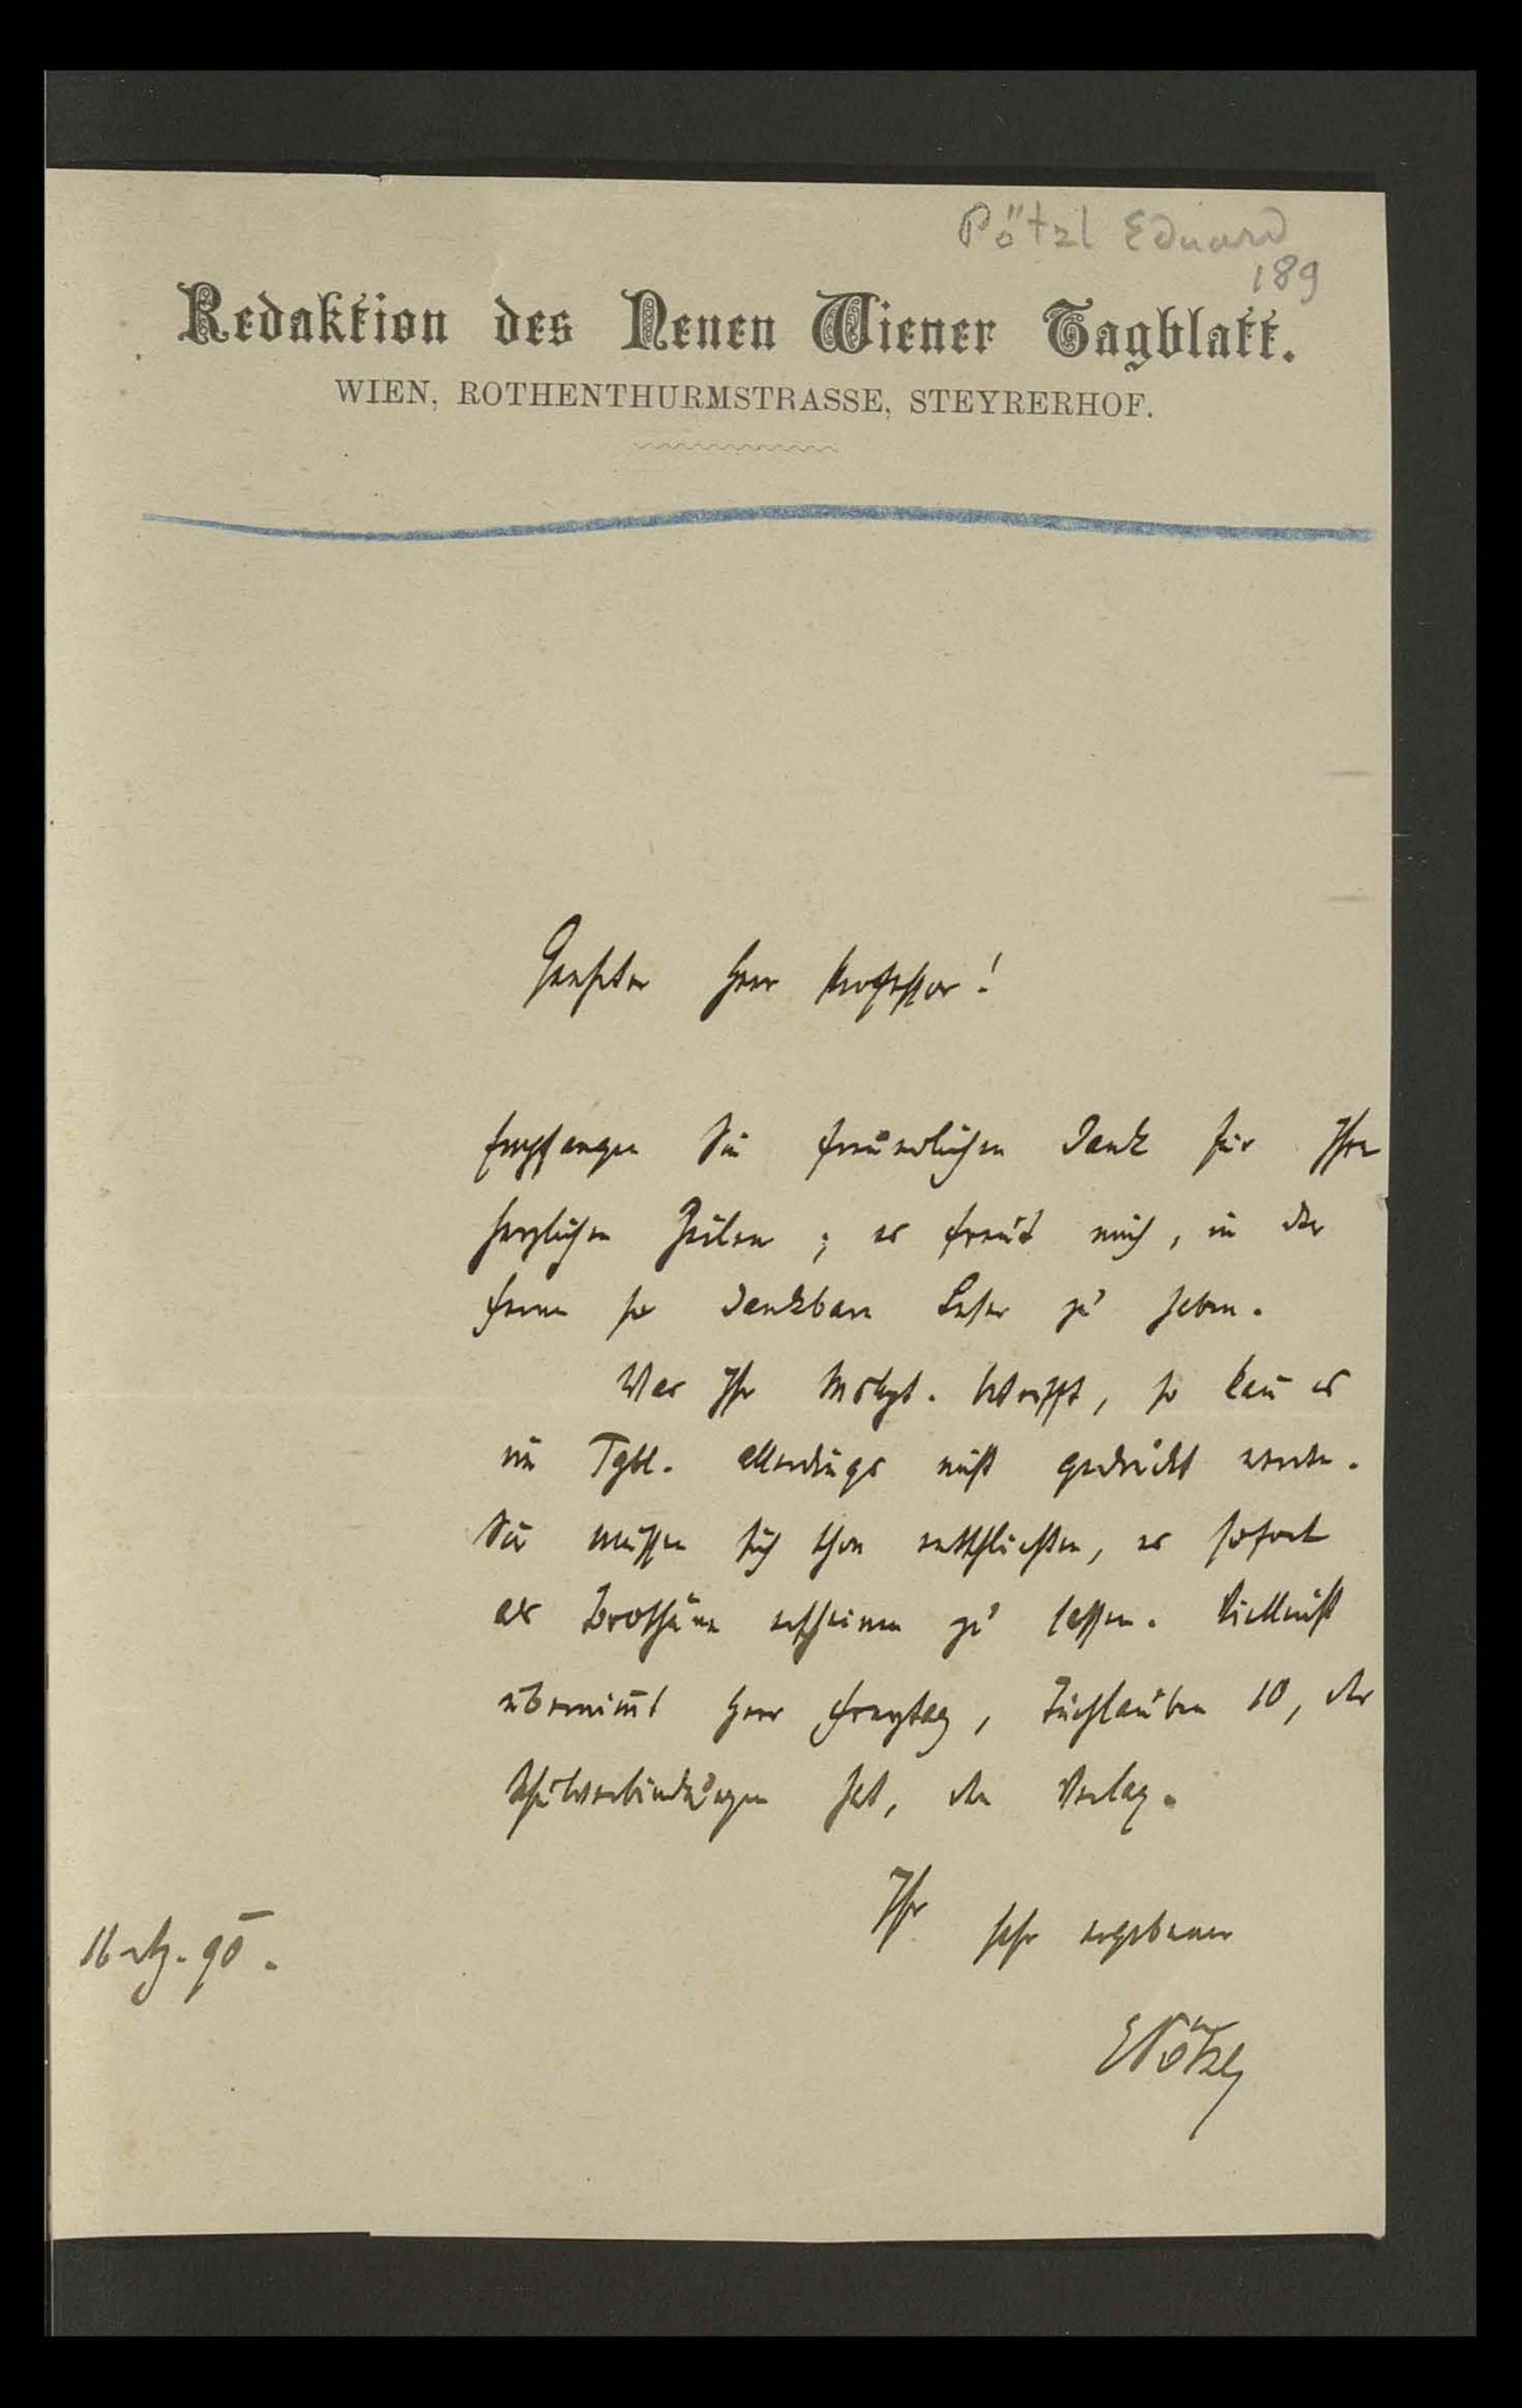 Pötzl Eduard
189
Redaktion des Neuen Wiener Tagblatt.
WIEN, ROTHENTHURMSTRASSE, STEYRERHOF.
Geehrter Herr Professor!
Empfangen Sie freundlichen Dank für Ihre
herzlichen Zeilen; es freut mich, in der
Ferne so dankbare Leser zu haben.
Was Ihr Mskpt. betrifft, so kan̄ es
im Tgbl. allerdings nicht gedruckt werden.
Sie müssen sich schon entschließen, es sofort
als Brochüre erscheinen zu lassen. Vielleicht
übernim̄t Herr Freytag, Tuchlauben 10, der
Schulverbindungen hat, den Verlag.
Ihr sehr ergebener
16 90.
EPötzl